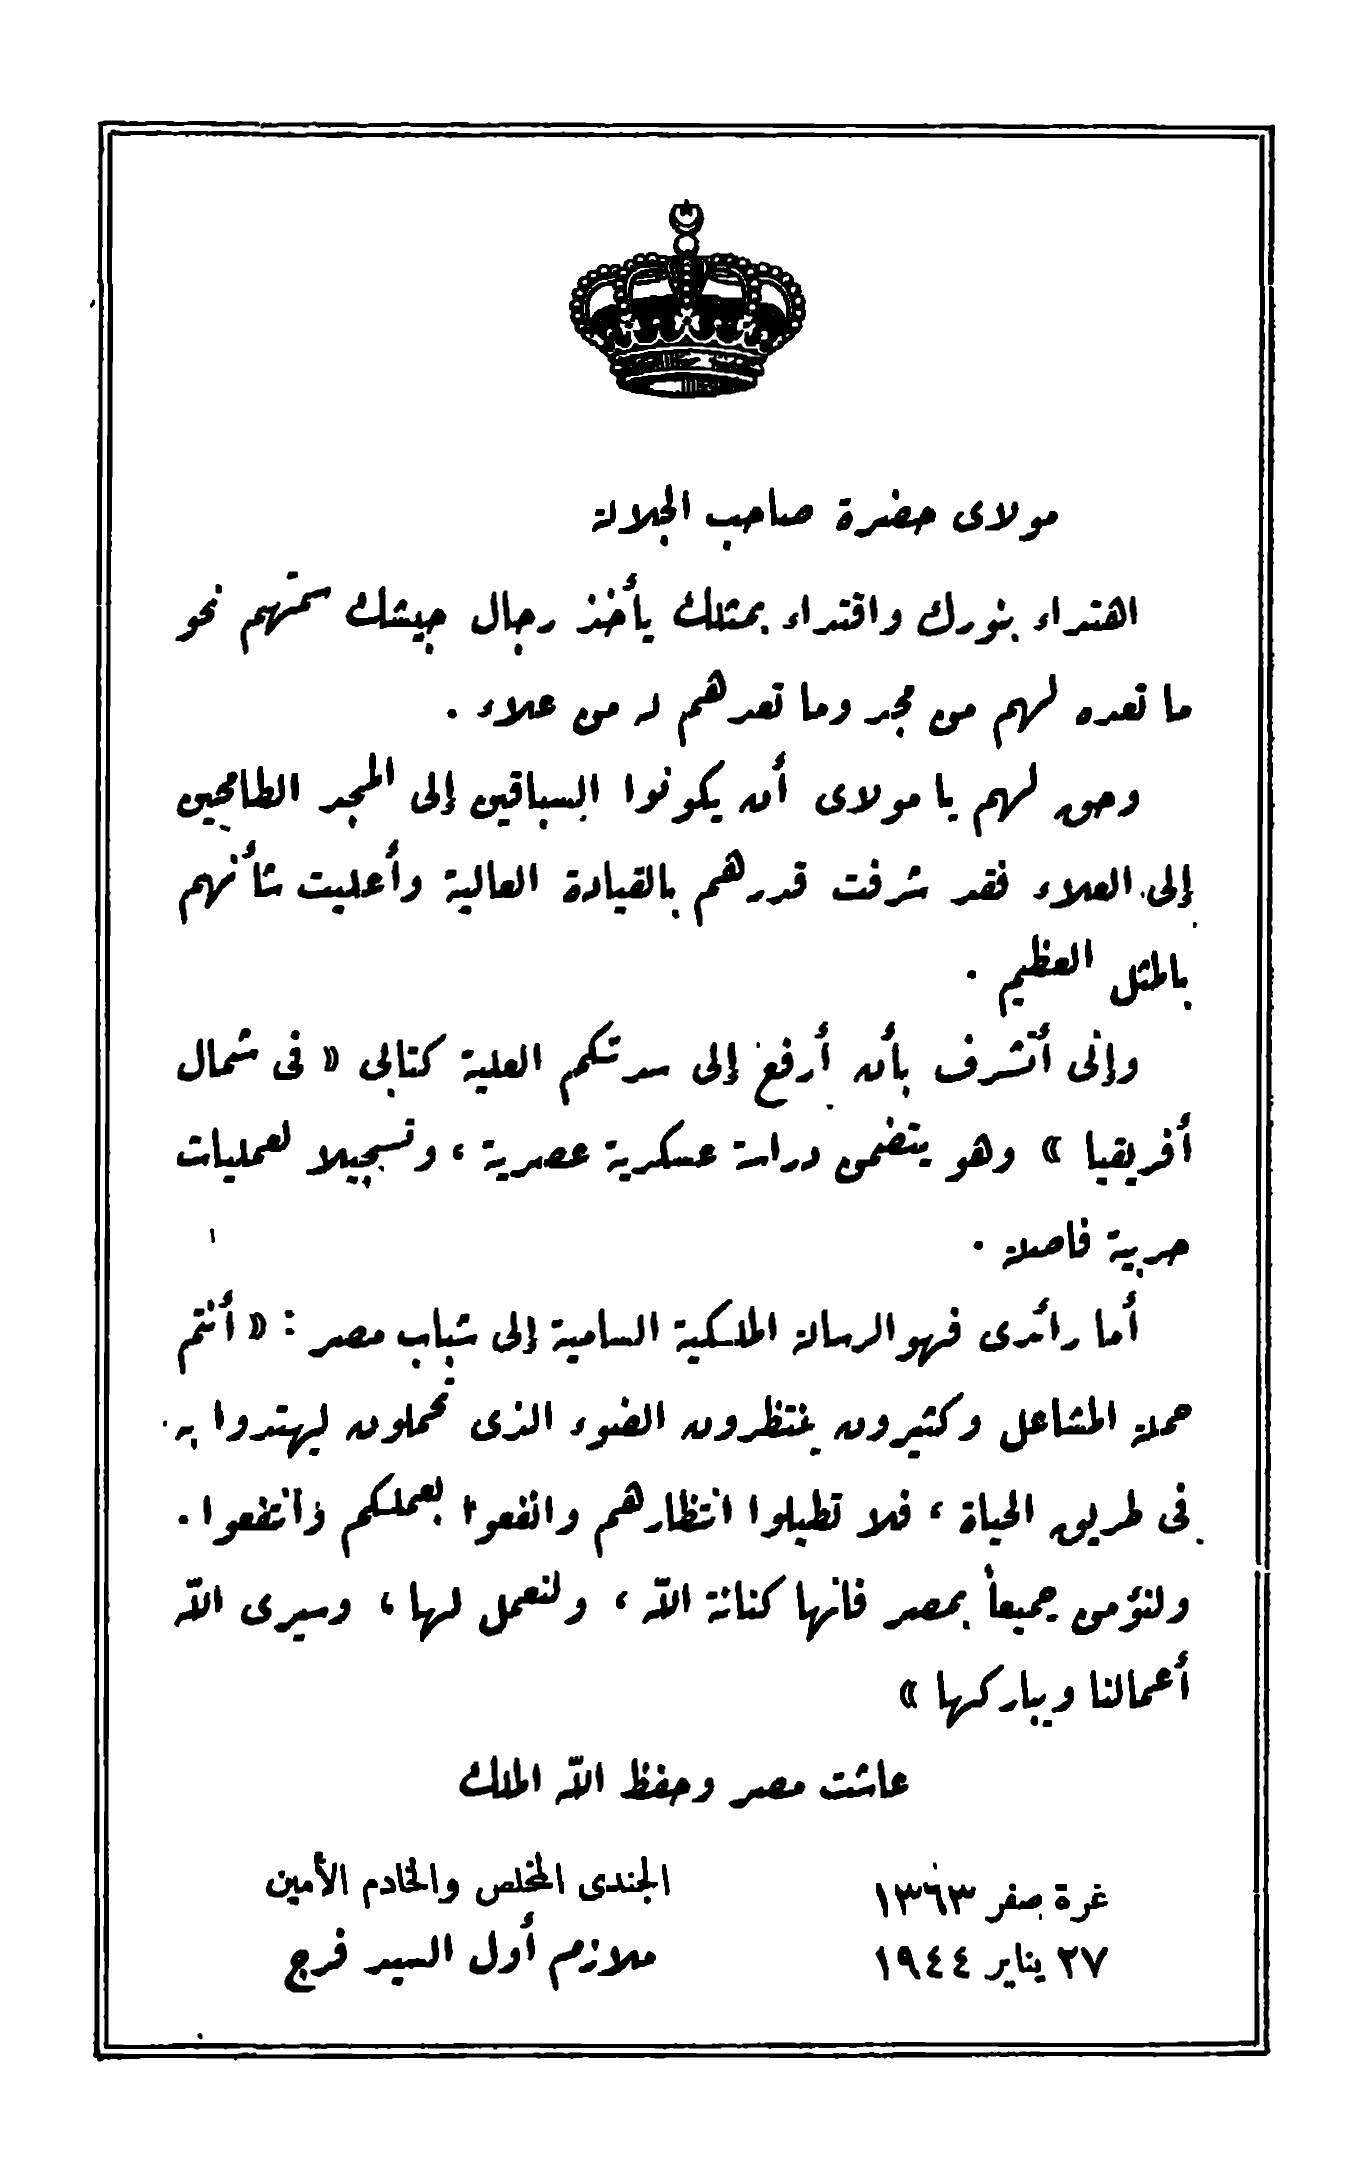 مولاى حضرة صاحب الجلالة
اهتداء بنورك واقتداء بمثلك يأخذ رجال جيشك سمتهم نحو
ما تعده لهم من مجد وما تعدهم له من علاء .
وحق لهم يا مولاى أن يكونوا السباقين إلى المجد الطامحين
إلى العلاء فقد شرفت قدرهم بالقيادة العالية وأعليت شأنهم
بالمثل العظيم .
وإنى أتشرف بأن أرفع إلى سدتكم العلية كتابى « فى شمال
أفريقيا » وهو يتضمن دراسة عسكرية عصرية ، وتسجيلا لعمليات
حربية فاصلة .
أما رائدى فهو الرسالة الملكية السامية إلى شباب مصر : « أنتم
حملة المشاعل وكثيرون ينتظرون الضوء الذى تحملون ليهتدوا به
فى طريق الحياة ، فلا تطيلوا انتظارهم وانفعوا بعملكم وانتفعوا .
ولنؤمن جميعاً بمصر فانها كنانة الله ، ولنعمل لها ، وسيرى الله
أعمالنا ويباركها »
عاشت مصر وحفظ الله الملك
غرة صفر ١٣٦٣
٢٧ يناير ١٩٤٤
الجندى المخلص والخادم الأمين
ملازم أول السيد فرج